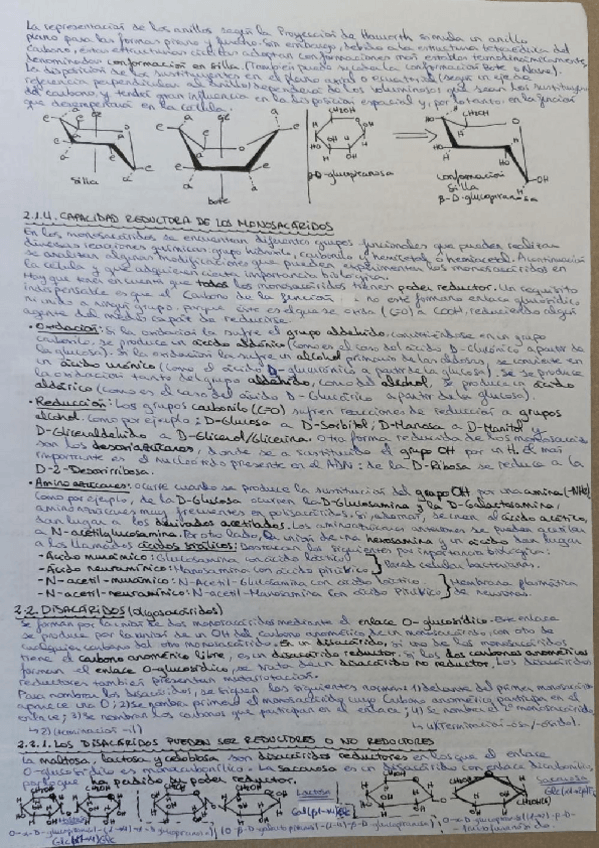 La representación de los anillos según la Proyección de Haworth simula un anillo
plano para las formas pirano y furano. Sin embargo, debido a la estructura tetraédrica del
carbono, estas estructuras adoptan conformaciones más estables termodinámicamente,
denominadas conformación en silla. (También puede suceder la conformación Bote o Nave).
La disposición de los sustituyentes en el plano axial o ecuatorial (según un eje de
referencia perpendicular al anillo) dependerá de los voluminosos que sean los sustituyentes
del carbono, y tendrá gran influencia en la disposición espacial y, por lo tanto, en la función
que desempeñará en la célula.
silla
bote
CH2OH
β-D-glucopiranosa
CH2OH
conformación
silla
β-D-glucopiranosa
2.1.4. CAPACIDAD REDUCTORA DE LOS MONOSACÁRIDOS
En los monosacáridos se encuentran diferentes grupos funcionales que pueden realizar
diversas reacciones químicas: grupo hidroxilo, carbonilo y hemicetal o hemiacetal. A continuación
se analizan algunas modificaciones que pueden experimentar los monosacáridos en
la célula y que adquieren cierta importancia biológica.
Hay que tener en cuenta que todos los monosacáridos tienen poder reductor. Un requisito
indispensable es que el Carbono de la función no esté formando enlace glucosídico
ni unido a ningún grupo, porque éste es el que se oxida (C=O) a COOH, reduciendo algún
agente del medio capaz de reducirse.
• Oxidación: Si la oxidación la sufre el grupo aldehído, convirtiéndose en un grupo
carboxilo, se produce un ácido aldónico (como es el caso del ácido D-Glucónico a partir de
la glucosa). Si la oxidación la sufre un alcohol primario de las aldosas, se convierte en
un ácido urónico (como el ácido D-glucurónico a partir de la glucosa). Si se produce
la oxidación tanto del grupo aldehído, como del alcohol, se produce un ácido
aldárico (como es el caso del ácido D-Glucárico a partir de la glucosa).
• Reducción: Los grupos carbonilo (C=O) sufren reacciones de reducción a grupos
alcohol. Como por ejemplo: D-Glucosa a D-Sorbitol; D-Manosa a D-Manitol y
D-Gliceraldehído a D-Glicerol/Glicerina. Otra forma reducida de los monosacáridos
son los desoxiazúcares, donde se a sustituido el grupo OH por un H. El más
importante es el nucleótido presente en el ADN: de la D-Ribosa se reduce a la
D-2-Desoxirribosa.
• Aminoazúcares: ocurre cuando se produce la sustitución del grupo OH por una amina (-NH2)
Como por ejemplo, de la D-Glucosa ocurren la D-Glucosamina y la D-Galactosamina,
aminoazúcares muy frecuentes en polisacáridos. Si, además, se unen al ácido acético,
dan lugar a los derivados acetilados. Los aminoazúcares anteriores se pueden acetilar
a N-acetilglucosamina. Por otro lado, la unión de una hexosamina y un ácido dan lugar
a los llamados ácidos siálicos: Destacan los siguientes por importancia biológica:
- Ácido murámico: Glucosamina con ácido láctico
- Ácido neuramínico: Manosamina con ácido pirúvico
Pared celular bacteriana.
- N-acetil-murámico: N-Acetil-Glucosamina con ácido láctico.
- N-acetil-neuramínico: N-acetil-Manosamina con ácido Pirúvico
Membrana plasmática
de neuronas.
2.2. DISACÁRIDOS (oligosacáridos)
Se forman por la unión de dos monosacáridos mediante el enlace O-glucosídico. Este enlace
se produce por la unión de un OH del carbono anomérico de un monosacárido, con otro de
cualquier carbono del otro monosacárido. En un disacárido, si uno de los monosacáridos
tiene el carbono anomérico libre, es un disacárido reductor. Si los dos carbonos anoméricos
forman el enlace O-glucosídico, se trata de un disacárido no reductor. Los disacáridos
reductores también presentan mutarrotación.
Para nombrar los disacáridos, se siguen las siguientes normas: 1) delante del primer monosacárido
aparece una O; 2) se nombra primero el monosacárido cuyo carbono anomérico participa en el
enlace; 3) se nombran los carbonos que participan en el enlace; 4) se nombra el 2º monosacárido
2.2.1. LOS DISACÁRIDOS PUEDEN SER REDUCTORES O NO REDUCTORES
La maltosa, lactosa y celobiosa son disacáridos reductores en los que el enlace
O-glucosídico es monocarbonílico. La sacarosa es un disacárido con enlace dicarbonílico,
por lo que ha perdido su poder reductor.
Lactosa
Sacarosa